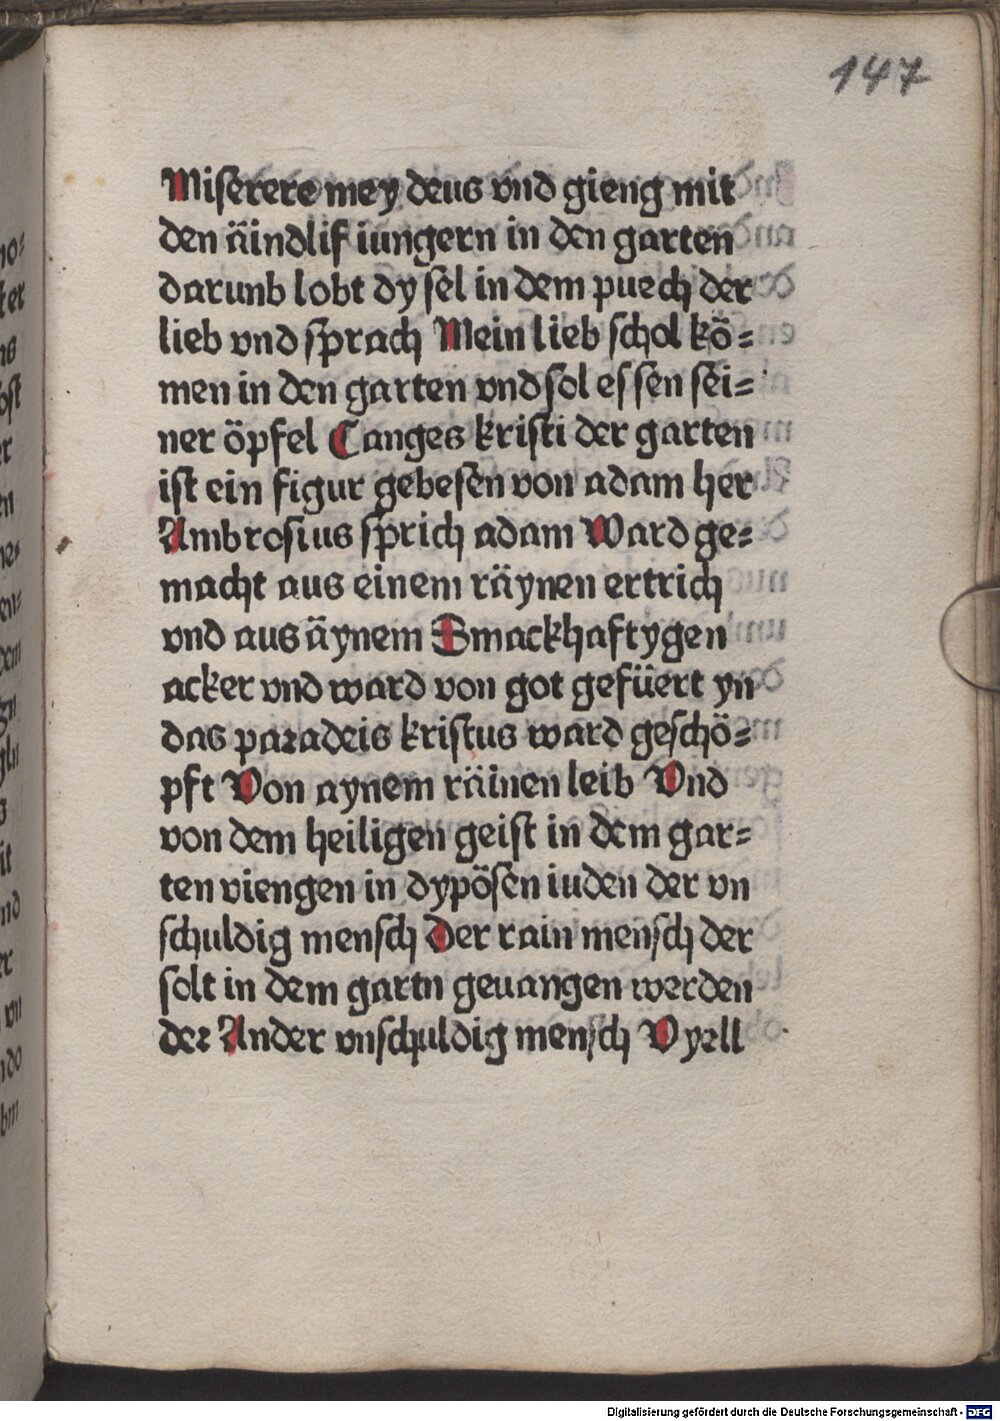 147
Miserere mey deus vnd gieng mit
den äindlif iungern in den garten
darunb lobt dy sel in dem puech der
lieb vnd sprach Mein lieb schol kö=
men in den garten vnd sol essen sei=
ner öpfel Canges kristi der garten
ist ein figur gebesen von adam her
Ambrosius sprich adam Ward ge=
macht aus einem räynen ertrich
vnd aus äynem Smackhaftygen
acker vnd ward von got gefüert yn
das paradeis kristus ward geschö=
pft Von aynem räinen leib Vnd
von dem heiligen geist in dem gar=
ten viengen in dy pösen iuden der vn
schuldig mensch Der rain mensch der
solt in dem gartn geuangen werden
der Ander vnschuldig mensch Vyell
Digitalisierung gefördert durch die Deutsche Forschungsgemeinschaft - DFG